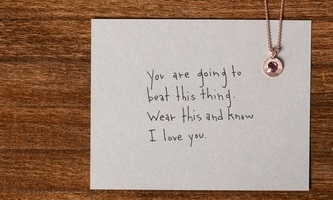 You are going to
beat this thing.
Wear this and know
I love you.